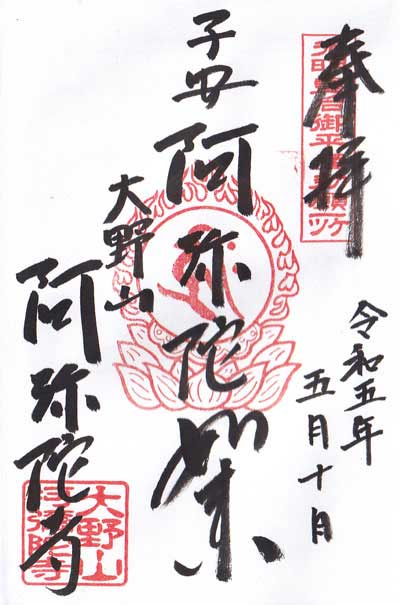 奉拝
令和五年
五月十月
子安阿弥陀如来
大野山
阿弥陀寺
大野山
阿彌陀寺